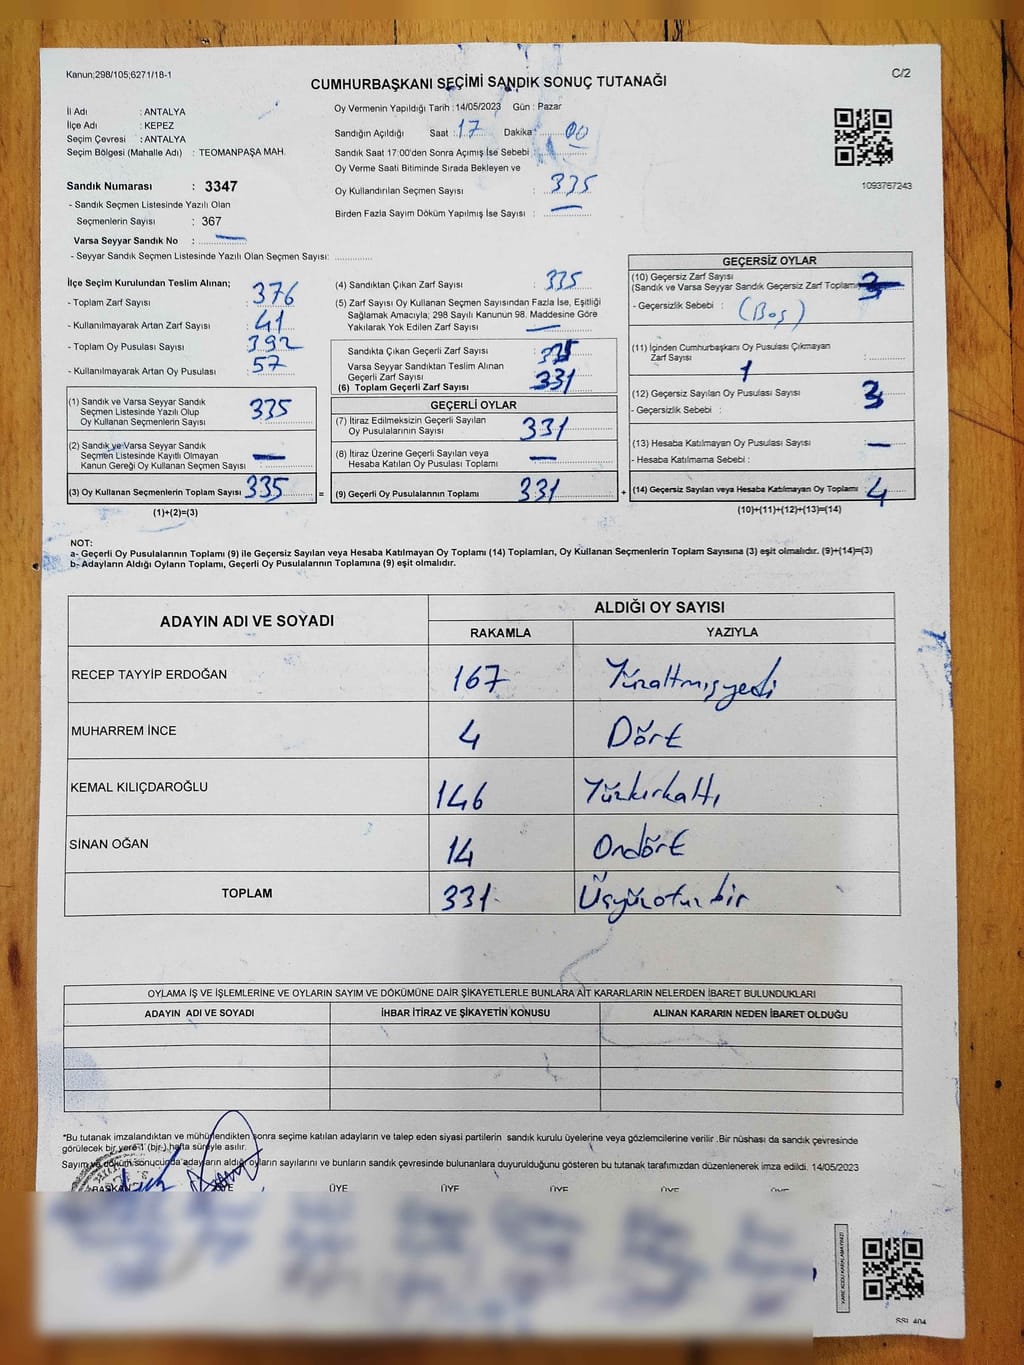 Kanun;298/105;6271/18-1
C/2
CUMHURBAŞKANI SEÇİMİ SANDIK SONUÇ TUTANAĞI
İl Adı : ANTALYA
İlçe Adı : KEPEZ
Seçim Çevresi : ANTALYA
Seçim Bölgesi (Mahalle Adı) : TEOMANPAŞA MAH.
Sandık Numarası : 3347
- Sandık Seçmen Listesinde Yazılı Olan
Seçmenlerin Sayısı : 367
Varsa Seyyar Sandık No : —
- Seyyar Sandık Seçmen Listesinde Yazılı Olan Seçmen Sayısı: ............
Oy Vermenin Yapıldığı Tarih : 14/05/2023 Gün : Pazar
Sandığın Açıldığı Saat : 17 Dakika : 00
Sandık Saat 17:00'den Sonra Açımış İse Sebebi
Oy Verme Saati Bitiminde Sırada Bekleyen ve
Oy Kullandırılan Seçmen Sayısı : 335
Birden Fazla Sayım Döküm Yapılmış İse Sayısı : —
1093767243
İlçe Seçim Kurulundan Teslim Alınan;
- Toplam Zarf Sayısı : 376
- Kullanılmayarak Artan Zarf Sayısı : 41
- Toplam Oy Pusulası Sayısı : 392
- Kullanılmayarak Artan Oy Pusulası : 57
(1) Sandık ve Varsa Seyyar Sandık
Seçmen Listesinde Yazılı Olup
Oy Kullanan Seçmenlerin Sayısı 335
(2) Sandık ve Varsa Seyyar Sandık
Seçmen Listesinde Kayıtlı Olmayan
Kanun Gereği Oy Kullanan Seçmen Sayısı —
(3) Oy Kullanan Seçmenlerin Toplam Sayısı 335 =
(1)+(2)=(3)
(4) Sandıktan Çıkan Zarf Sayısı : 335
(5) Zarf Sayısı Oy Kullanan Seçmen Sayısından Fazla İse, Eşitliği
Sağlamak Amacıyla; 298 Sayılı Kanunun 98. Maddesine Göre
Yakılarak Yok Edilen Zarf Sayısı : —
Sandıkta Çıkan Geçerli Zarf Sayısı
Varsa Seyyar Sandıktan Teslim Alınan
Geçerli Zarf Sayısı
(6) Toplam Geçerli Zarf Sayısı 331
GEÇERLİ OYLAR
(7) İtiraz Edilmeksizin Geçerli Sayılan
Oy Pusulalarının Sayısı 331
(8) İtiraz Üzerine Geçerli Sayılan veya
Hesaba Katılan Oy Pusulası Toplamı —
(9) Geçerli Oy Pusulalarının Toplamı 331 +
GEÇERSİZ OYLAR
(10) Geçersiz Zarf Sayısı
(Sandık ve Varsa Seyyar Sandık Geçersiz Zarf Toplamı)
- Geçersizlik Sebebi : (Boş)
(11) İçinden Cumhurbaşkanı Oy Pusulası Çıkmayan
Zarf Sayısı : 1
(12) Geçersiz Sayılan Oy Pusulası Sayısı 3
- Geçersizlik Sebebi :
(13) Hesaba Katılmayan Oy Pusulası Sayısı —
- Hesaba Katılmama Sebebi :
(14) Geçersiz Sayılan veya Hesaba Katılmayan Oy Toplamı 4
(10)+(11)+(12)+(13)=(14)
NOT:
a- Geçerli Oy Pusulalarının Toplamı (9) ile Geçersiz Sayılan veya Hesaba Katılmayan Oy Toplamı (14) Toplamları, Oy Kullanan Seçmenlerin Toplam Sayısına (3) eşit olmalıdır. (9)+(14)=(3)
b- Adayların Aldığı Oyların Toplamı, Geçerli Oy Pusulalarının Toplamına (9) eşit olmalıdır.
ADAYIN ADI VE SOYADI ALDIĞI OY SAYISI
RAKAMLA YAZIYLA
RECEP TAYYİP ERDOĞAN 167 Yüzaltmışyedi
MUHARREM İNCE 4 Dört
KEMAL KILIÇDAROĞLU 146 Yüzkırkaltı
SİNAN OĞAN 14 Ondört
TOPLAM 331 Üçyüzotuzbir
OYLAMA İŞ VE İŞLEMLERİNE VE OYLARIN SAYIM VE DÖKÜMÜNE DAİR ŞİKAYETLERLE BUNLARA AİT KARARLARIN NELERDEN İBARET BULUNDUKLARI
ADAYIN ADI VE SOYADI İHBAR İTİRAZ VE ŞİKAYETİN KONUSU ALINAN KARARIN NEDEN İBARET OLDUĞU
*Bu tutanak imzalandıktan ve mühürlendikten sonra seçime katılan adayların ve talep eden siyasi partilerin sandık kurulu üyelerine veya gözlemcilerine verilir .Bir nüshası da sandık çevresinde
görülecek bir yere 1 (bir) hafta süreyle asılır.
Sayım ve döküm sonucunda adayların aldığı oyların sayılarını ve bunların sandık çevresinde bulunanlara duyurulduğunu gösteren bu tutanak tarafımızdan düzenlenerek imza edildi. 14/05/2023
BAŞKAN ÜYE ÜYE ÜYE ÜYE ÜYE ÜYE